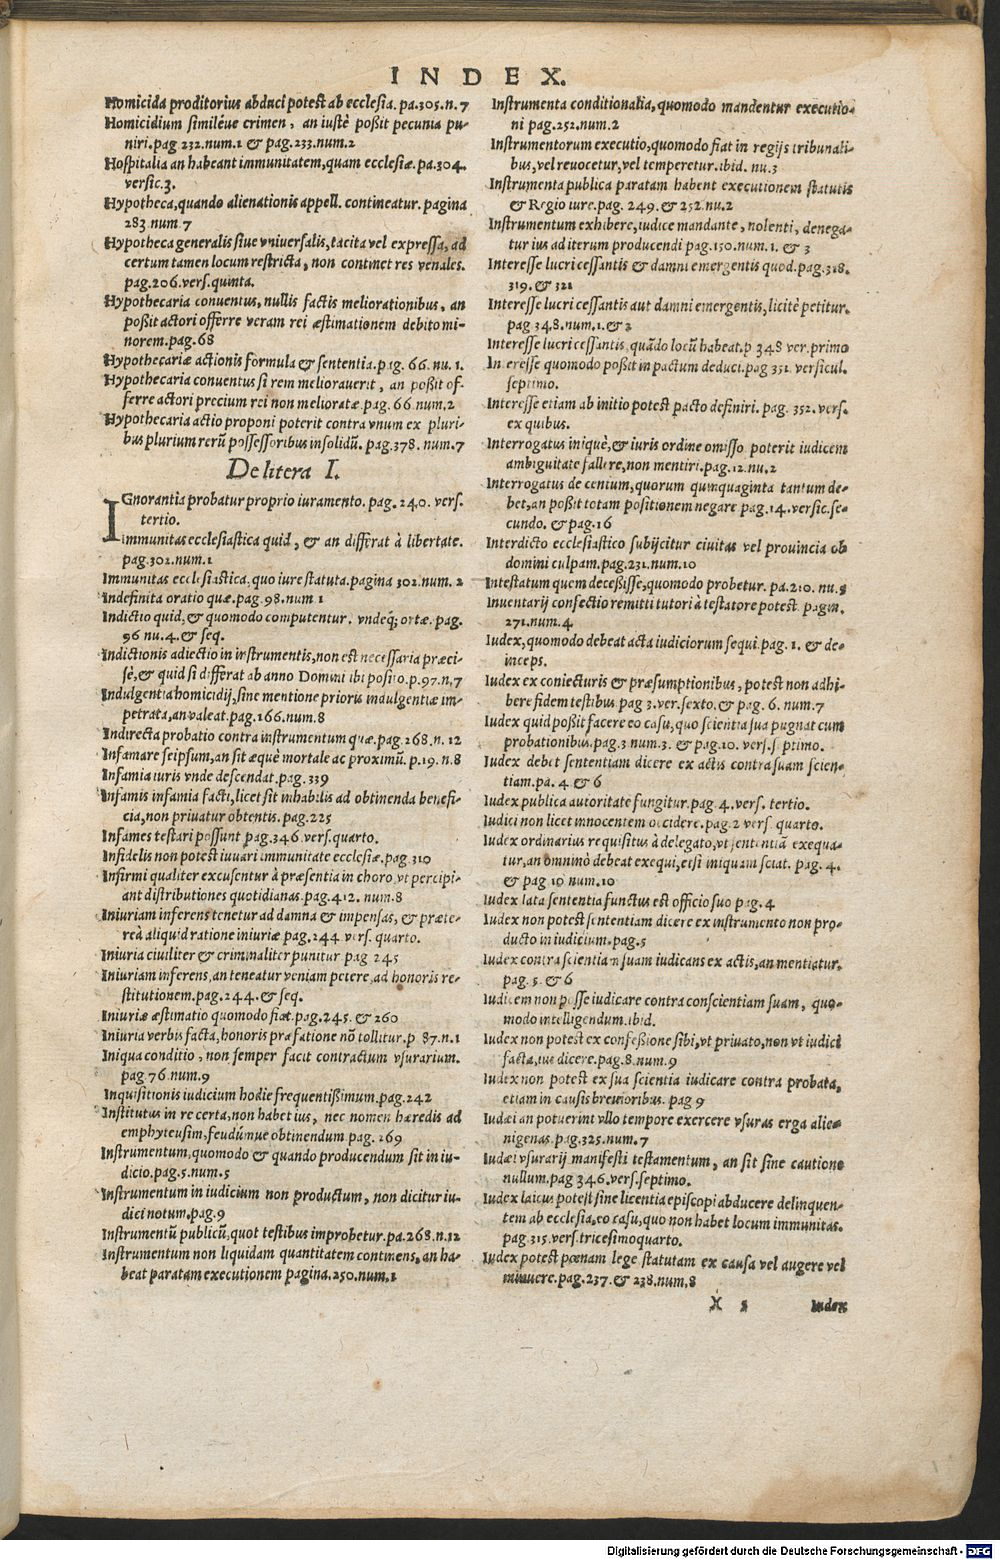 INDEX.
Homicida proditorius abduci potest ab ecclesia. pa.305.n.7
Homicidium simileúe crimen, an iustè poßit pecunia pu-
niri.pag 232.num.1 & pag.233.num.2
Hospitalia an habeant immunitatem,quam ecclesiæ.pa.304.
versic.3.
Hypotheca,quando alienationis appell. contineatur. pagina
283 num 7
Hypotheca generalis siue vniuersalis,tacita vel expressa, ad
certum tamen locum restricta, non continet res venales.
pag.206.vers.quinta.
Hypothecaria conuentus, nullis factis meliorationibus, an
poßit actori offerre veram rei æstimationem debito mi-
norem.pag.68
Hypothecariæ actionis formula & sententia.pag. 66. nu. 1.
Hypothecaria conuentus si rem meliorauerit, an poßit of-
ferre actori precium rei non melioratæ.pag. 66.num.2
Hypothecaria actio proponi poterit contra vnum ex pluri-
bus plurium rerū possessoribus insolidū. pag.378. num.7
De litera I.
IGnorantia probatur proprio iuramento. pag. 240. vers.
tertio.
Immunitas ecclesiastica quid, & an differat à libertate.
pag.302.num.1
Immunitas ecclesiastica,quo iure statuta.pagina 302.num. 2
Indefinita oratio quæ.pag.98.num 1
Indictio quid,& quomodo computentur, vndeq; ortæ. pag.
96 nu.4.& seq.
Indictionis adiectio in instrumentis,non est necessaria præci-
sè,& quid si differat ab anno Domini ibi posito.p.97.n.7
Indulgentia homicidij,sine mentione prioris indulgentiæ im-
petrata,an valeat.pag.166.num.8
Indirecta probatio contra instrumentum quæ.pag.268.n.12
Infamare seipsum,an sit æquè mortale ac proximū.p.19.n.8
Infamia iuris vnde descendat.pag.339
Infamis infamia facti,licet sit inhabilis ad obtinenda benefi-
cia,non priuatur obtentis.pag.225
Infames testari possunt pag.346 vers.quarto.
Infidelis non potest iuuari immunitate ecclesiæ.pag.310
Infirmi qualiter excusentur à præsentia in choro,vt percipi-
ant distributiones quotidianas.pag.412. num.8
Iniuriam inferens tenetur ad damna & impensas, & præte-
reà aliquid ratione iniuriæ pag.244 vers. quarto.
Iniuria ciuiliter & criminaliter punitur pag 245
Iniuriam inferens,an teneatur veniam petere,ad honoris re-
stitutionem.pag.244.& seq.
Iniuriæ æstimatio quomodo fiat.pag.245. & 260
Iniuria verbis facta,honoris præfatione nō tollitur.p 87.n.1
Iniqua conditio, non semper facit contractum vsurarium.
pag 76.num.9
Inquisitionis iudicium hodie frequentißimum.pag.242
Institutus in re certa,non habet ius, nec nomen hæredis ad
emphyteusim,feudúmue obtinendum pag. 269
Instrumentum,quomodo & quando producendum sit in iu-
dicio.pag.5.num.5
Instrumentum in iudicium non productum, non dicitur iu-
dici notum.pag.9
Instrumentū publicū,quot testibus improbetur.pa.268.n.12
Instrumentum non liquidam quantitatem continens, an ha-
beat paratam executionem pagina.250.num.1
Instrumenta conditionalia, quomodo mandentur executio-
ni pag.252.num.2
Instrumentorum executio,quomodo fiat in regijs tribunali-
bus,vel reuocetur,vel temperetur.ibid. nu.3
Instrumenta publica paratam habent executionem statutis
& Regio iure.pag. 249. & 252 nu.2
Instrumentum exhibere,iudice mandante, nolenti, denega-
tur ius ad iterum producendi pag.150.num.1. & 3
Interesse lucri cessantis & damni emergentis quod.pag.318.
319. & 321
Interesse lucri cessantis aut damni emergentis,licitè petitur.
pag 348.num.1.& 2
Interesse lucri cessantis, quādo locū habeat.p 348 ver.primo
Interesse quomodo poßit in pactum deduci.pag 351 versicul.
septimo.
Interesse etiam ab initio potest pacto definiri. pag. 352. vers.
ex quibus.
Interrogatus iniquè,& iuris ordine omisso poterit iudicem
ambiguitate fallere,non mentiri.pag.12.nu.2
Interrogatus de centum,quorum quinquaginta tantum de-
bet,an poßit totam positionem negare pag.14.versic.se-
cundo. & pag.16
Interdicto ecclesiastico subijcitur ciuitas vel prouincia ob
domini culpam.pag.231.num.10
Intestatum quem deceßisse,quomodo probetur. pa.210. nu.
Inuentarij confectio remitti tutori à testatore potest pagin.
271.num.4
Iudex,quomodo debeat acta iudiciorum sequi pag. 1. & de-
inceps.
Iudex ex coniecturis & præsumptionibus, potest non adhi-
bere fidem testibus pag 3.ver.sexto.& pag. 6. num.7
Iudex quid poßit facere eo casu,quo scientia sua pugnat cum
probationibus.pag.3 num.3. & pag.10. vers.septimo.
Iudex debet sententiam dicere ex actis contra suam scien-
tiam.pa. 4 & 6
Iudex publica autoritate fungitur.pag.4.vers. tertio.
Iudici non licet innocentem occidere.pag.2 vers. quarto.
Iudex ordinarius requisitus à delegato,vt sententiā exequa-
tur,an omninò debeat exequi,etsi iniquam sciat. pag. 4.
& pag 10 num.10
Iudex lata sententia functus est officio suo pag. 4
Iudex non potest sententiam dicere ex instrumento non pro-
ducto in iudicium.pag.5
Iudex contra scientiam suam iudicans ex actis,an mentiatur.
pag. 5 & 6
Iudicem non posse iudicare contra conscientiam suam, quo-
modo intelligendum.ibid.
Iudex non potest ex confeßione sibi,vt priuato,non vt iudici
facta,ius dicere.pag.8.num.9
Iudex non potest ex sua scientia iudicare contra probata,
etiam in causis breuioribus. pag 9
Iudæi an potuerint vllo tempore exercere vsuras erga alie-
nigenas.pag.325.num.7
Iudæi vsurarij manifesti testamentum, an sit sine cautione
nullum.pag 346.vers.septimo.
Iudex laicus potest sine licentia episcopi abducere delinquen-
tem ab ecclesia,eo casu,quo non habet locum immunitas.
pag.315.vers.tricesimoquarto.
Iudex potest pœnam lege statutam ex causa vel augere vel
minuere.pag.237.& 238.num.8
X
Iudex
Digitalisierung gefördert durch die Deutsche Forschungsgemeinschaft - DFG